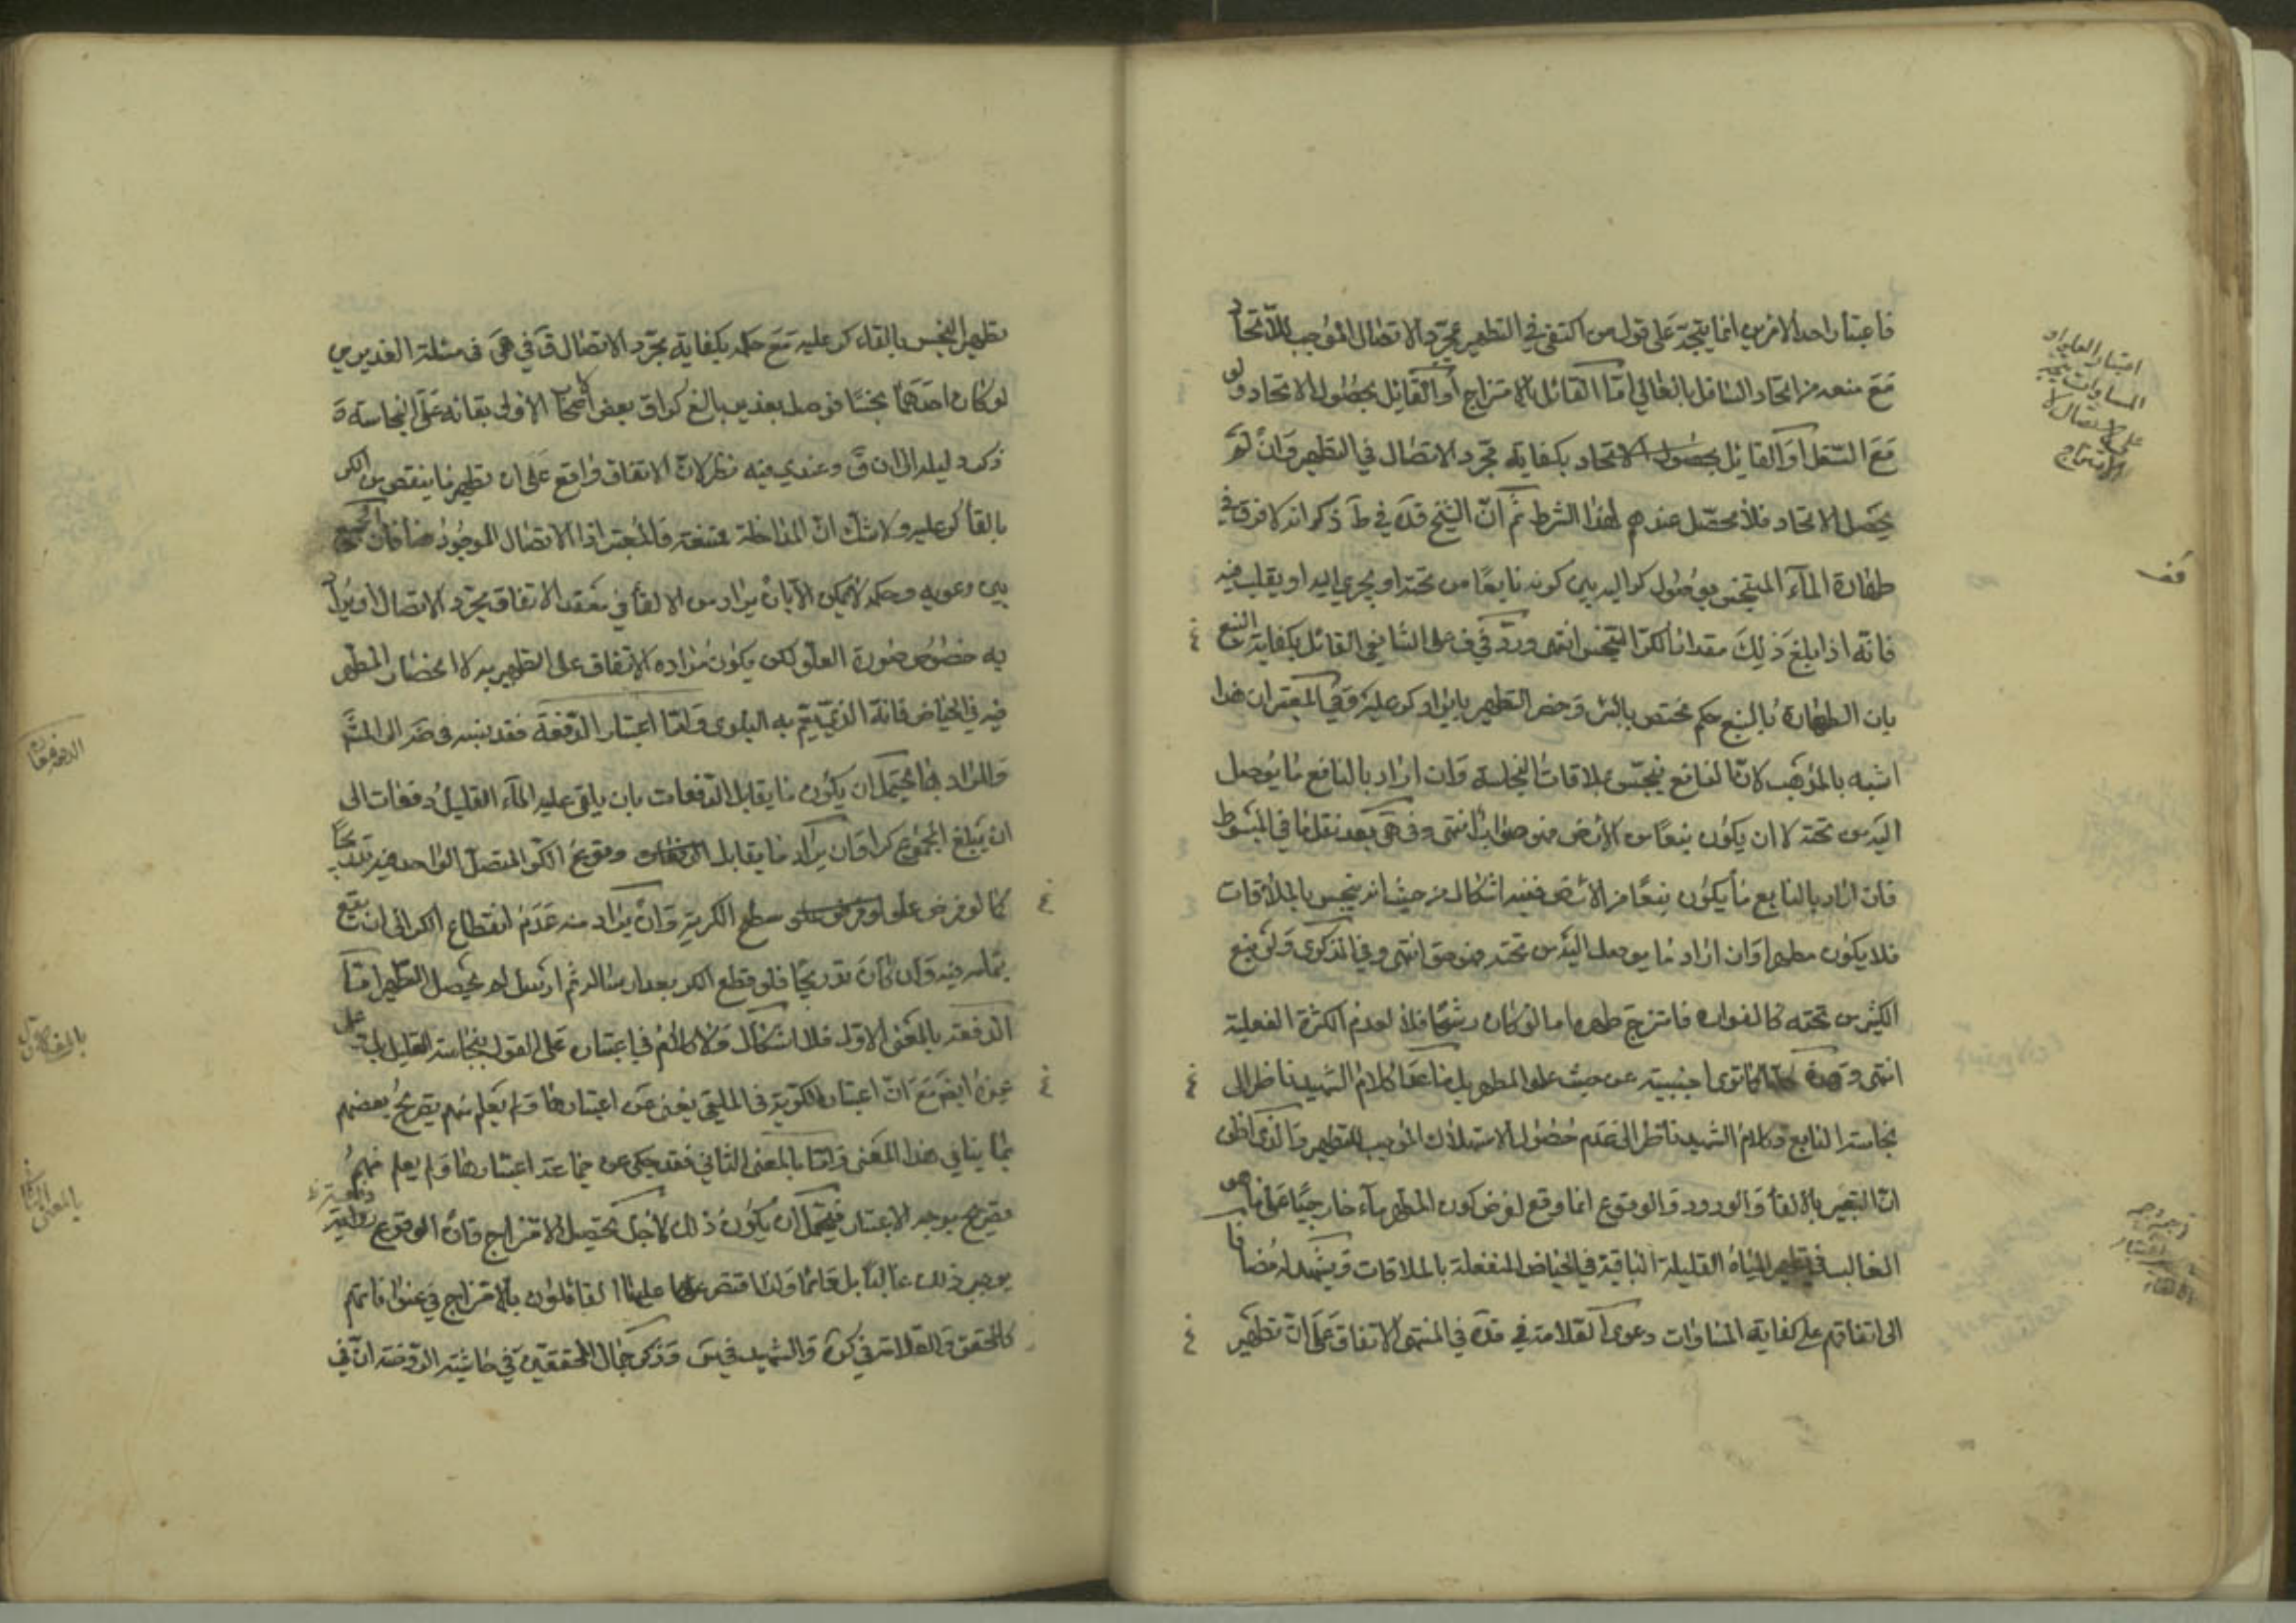 فاعتبار احد الامرين انما يتجه على قول من اكتفى في التطهير بمجرد الاتصال الموجب للاتحاد
مع منعه من اتحاد السافل بالعالي اما القائل بالامتزاج او القائل بحصول الاتحاد ولو
مع السفل او القائل بكفاية مجرد الاتصال في التطهير وان لم
يحصل الاتحاد فلا محصل عندهم لهذا الشرط ثم ان الشيخ قده في ط ذكر انه لا فرق في
طهارة الماء المتنجس بوصول كر اليه بين كونه نابعا من تحته او يجري اليه او يقلب فيه
فانه اذا بلغ ذلك مقدار الكر انتهى ورد في ف على الشافعي القائل بكفاية النبع
بان الطهارة بالنبع حكم مختص بالبئر وحصر التطهير بايراد كر عليه وفي المعتبر ان هذا
اشبه بالمذهب لان النابع ينجس بملاقات النجاسة وان اراد بالنابع ما يوصل
اليه من تحته لا ان يكون نبعا من الارض فهو صواب انتهى وفي هى بعد نقل ما في المبسوط
فان اراد بالنابع ما يكون نبعا من الارض ففيه اشكال من حيث انه ينجس بالملاقات
فلا يكون مطهرا وان اراد ما يوصل اليه من تحته فهو حق انتهى وفي الذكرى ولو نبع
الكثير من تحته كالفوارة فامتزج طهره اما لو كان رشحا فلا لعدم الكثرة الفعلية
انتهى وهذه كما ترى اجنبية عن حيث علو المطهر بل ما عدا كلام الشهيد ناظر الى
نجاسة النابع وكلام الشهيد ناظر الى عدم حصول الاستهلاك الموجب للتطهير والذي اظن
ان التعبير بالالقاء والورود والوقوع انما وقع لفرض كون المطهر ماء خارجيا على ما هو
الغالب في تطهير المياه القليلة الباقية في الحياض المنفعلة بالملاقات ويشهد له مضافا
الى اتفاقهم على كفاية المساوات دعوى العلامة في قده في المنتهى الاتفاق على ان تطهير
امتزاج
قف
تطهير النجس بالقاء كر عليه مع حكمه بكفاية مجرد الاتصال ق في هى في مسئلة الغديرين
لو كان احدهما نجسا فوصل بغدير بالغ كرا ق بعض اصحابنا الاولى بقائه على النجاسة
ذكر دليله الى ان ق وعندي فيه نظر لان الاتفاق واقع على ان تطهير ما ينقص عن الكر
بالقاء كر عليه ولا شك ان المداخلة ممتنعة فالمعتبر اذا الاتصال الموجود هنا فان الجمع
بين دعويه وحكمه لا يمكن الا بان يراد من الالقاء في معقد الاتفاق مجرد الاتصال او يراد
به خصوص صورة العلو لكن يكون مراده الاتفاق على التطهير به لا انحصار المطهر
فيه في الحياض فانه الذي يتم به البلوى واما اعتبار الدفعة فقد نسبه في ضه الى المش
والمراد بها يحتمل ان يكون ما يقابل الدفعات بان يلقى عليه الماء القليل دفعات الى
ان يبلغ المجموع كرا وان يراد ما يقابل وقوع الكر المتصل الواحد فيه تدريجا
كما لو فرض على سطح الكر وان يراد منه عدم انقطاع الكر الى ان يقع
بتمامه فيه وان كان تدريجا فلو قطع الكر بعد ارساله ثم ارسل لم يحصل التطهير اما
الدفعة بالمعنى الاول فلا اشكال ولا كلام في اعتباره على القول بنجاسة القليل
غيره ايضا مع ان اعتبار الكرية في الملقى يغني عن اعتبارها ولم يعلم منهم تصريح بعضهم
بما ينافي هذا المعنى واما بالمعنى الثاني فقد حكى عن جماعة اعتبارها ولم يعلم منهم
تصريح بوجه الاعتبار فيحتمل ان يكون ذلك لاجل تحصيل الامتزاج فان الوقوع دفعة
يوجب ذلك غالبا بل دائما ولذا اقتصر عليها القائلون بالامتزاج في عنوانهم
كالمحقق والعلامة في كره والشهيد في س وذكر جمال المحققين في حاشية الروضة ان في
بالمعنى الثاني